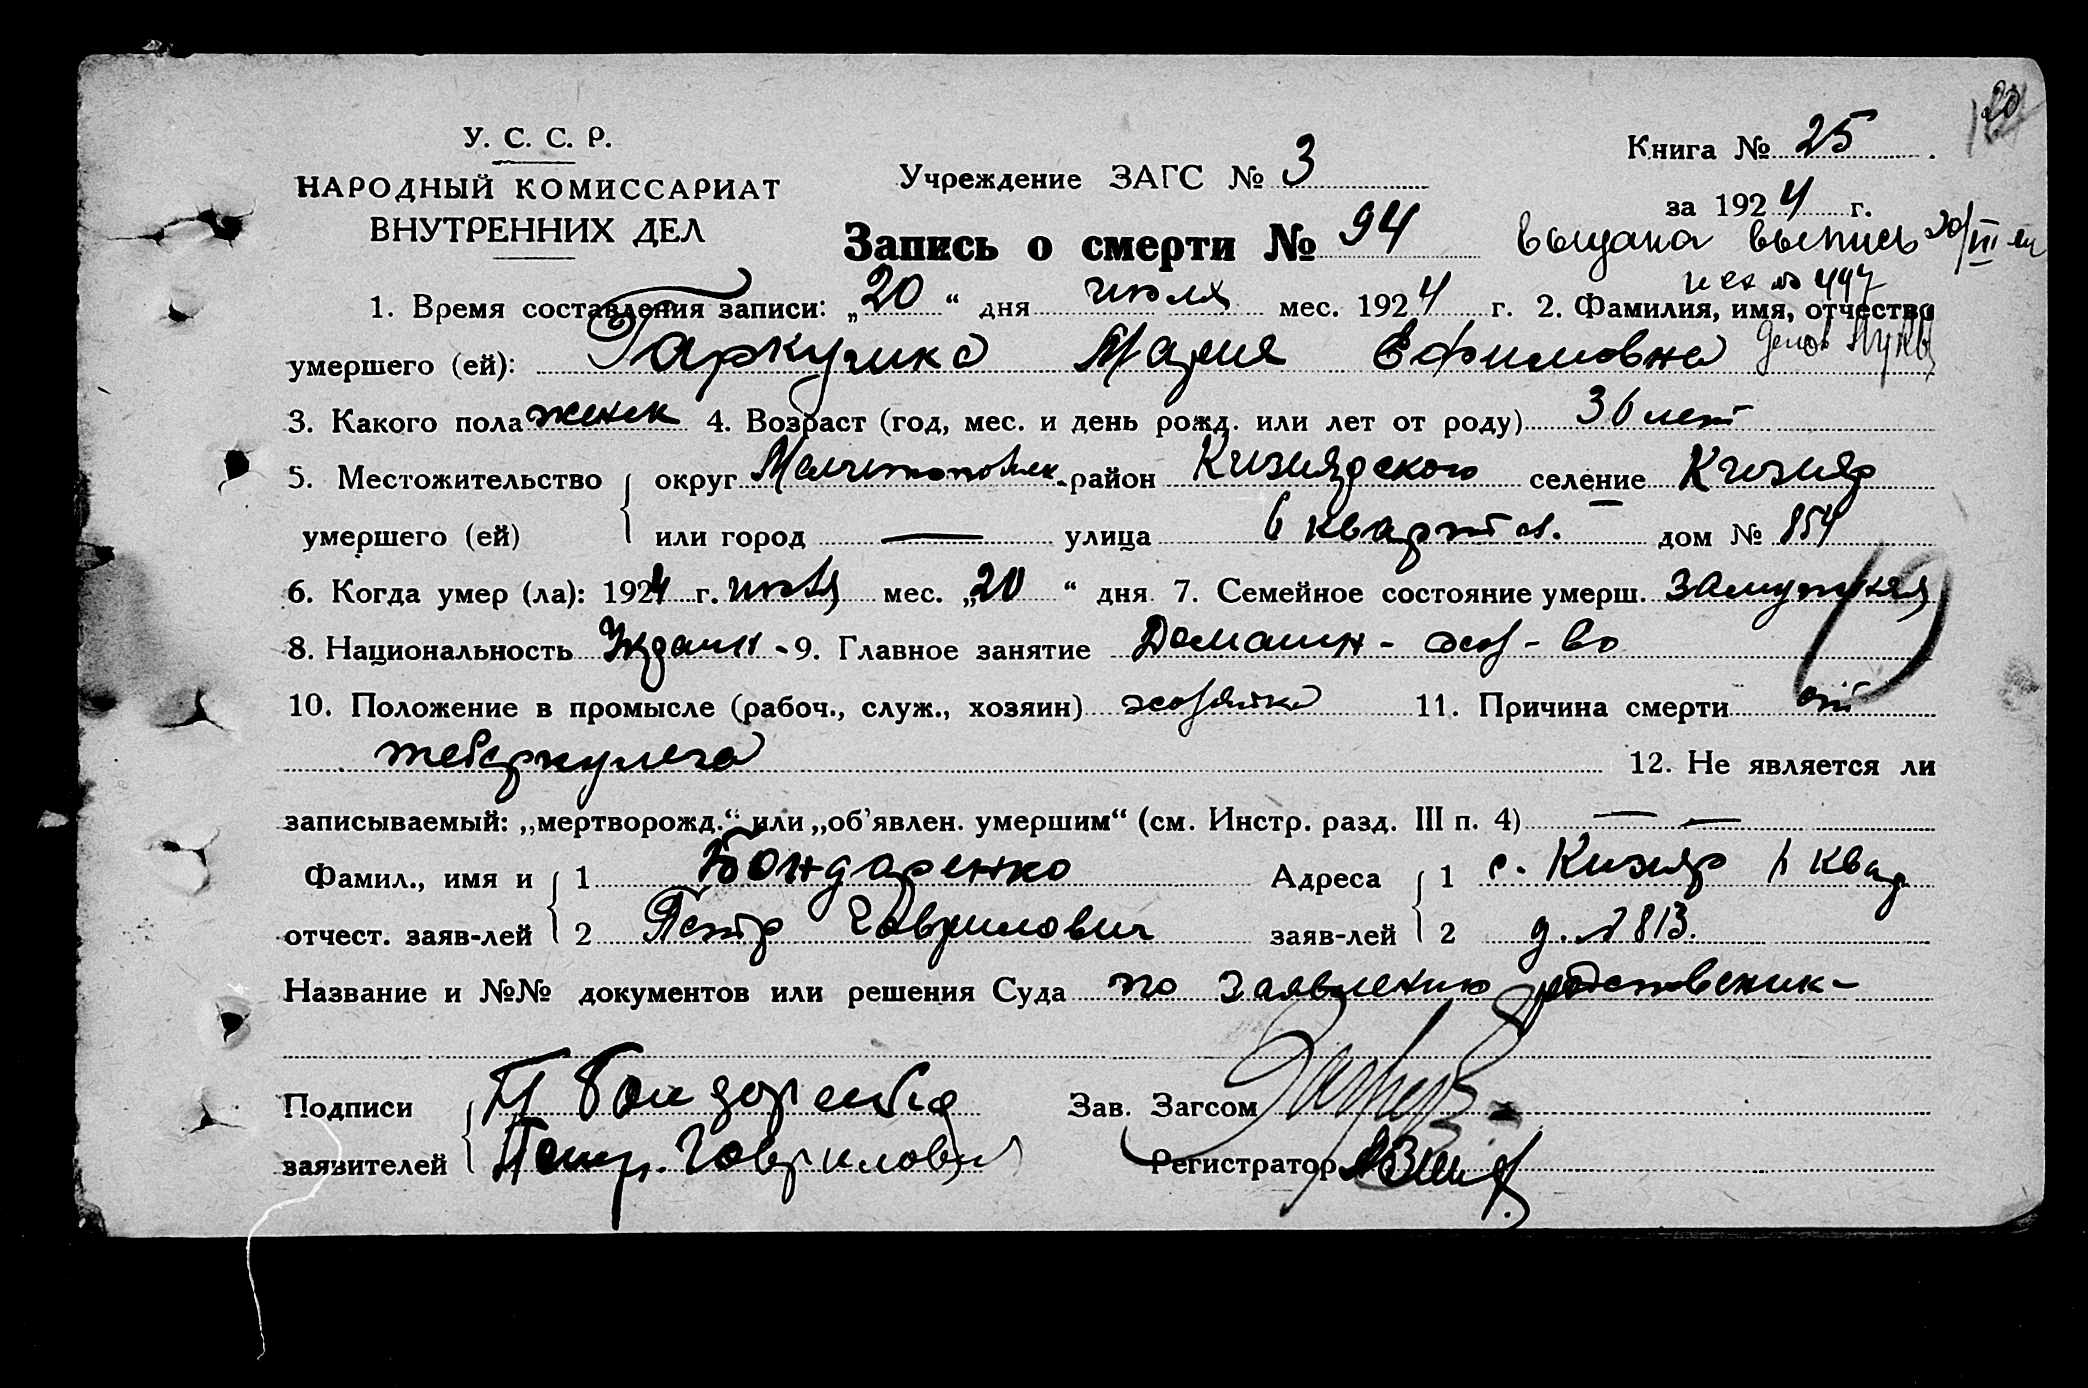 У. С. С. Р.
НАРОДНЫЙ КОМИССАРИАТ
ВНУТРЕННИХ ДЕЛ
Учреждение ЗАГС № 3
Книга № 25
за 1924 г.
Запись о смерти № 94
выдана выпись 20/III
исх № 497
1. Время составления записи: „20“ дня июля мес. 1924 г. 2. Фамилия, имя, отчество
умершего (ей): Мария Ефимовна
3. Какого пола женск 4. Возраст (год, мес. и день рожд. или лет от роду) 36 лет
5. Местожительство округ район Кизиярского селение Кизияр
умершего (ей) или город — улица 6 кварт дом № 854
6. Когда умер (ла): 1924 г. июля мес. „20“ дня 7. Семейное состояние умерш. замужняя
8. Национальность 9. Главное занятие Домашн-хоз-во
10. Положение в промысле (рабоч., служ., хозяин) хозяйка 11. Причина смерти от
12. Не является ли
записываемый: „мертворожд.“ или „об’явлен. умершим“ (см. Инстр. разд. III п. 4) — —
Фамил., имя и 1 Бондаренко Адреса 1 с. Кизияр квар
отчест. заяв-лей 2 Петр Гаврилович заяв-лей 2 д. 813.
Название и №№ документов или решения Суда по заявлению родственик-
Подписи П Бондаренко Зав. Загсом
заявителей Петр. Гаврилович Регистратор